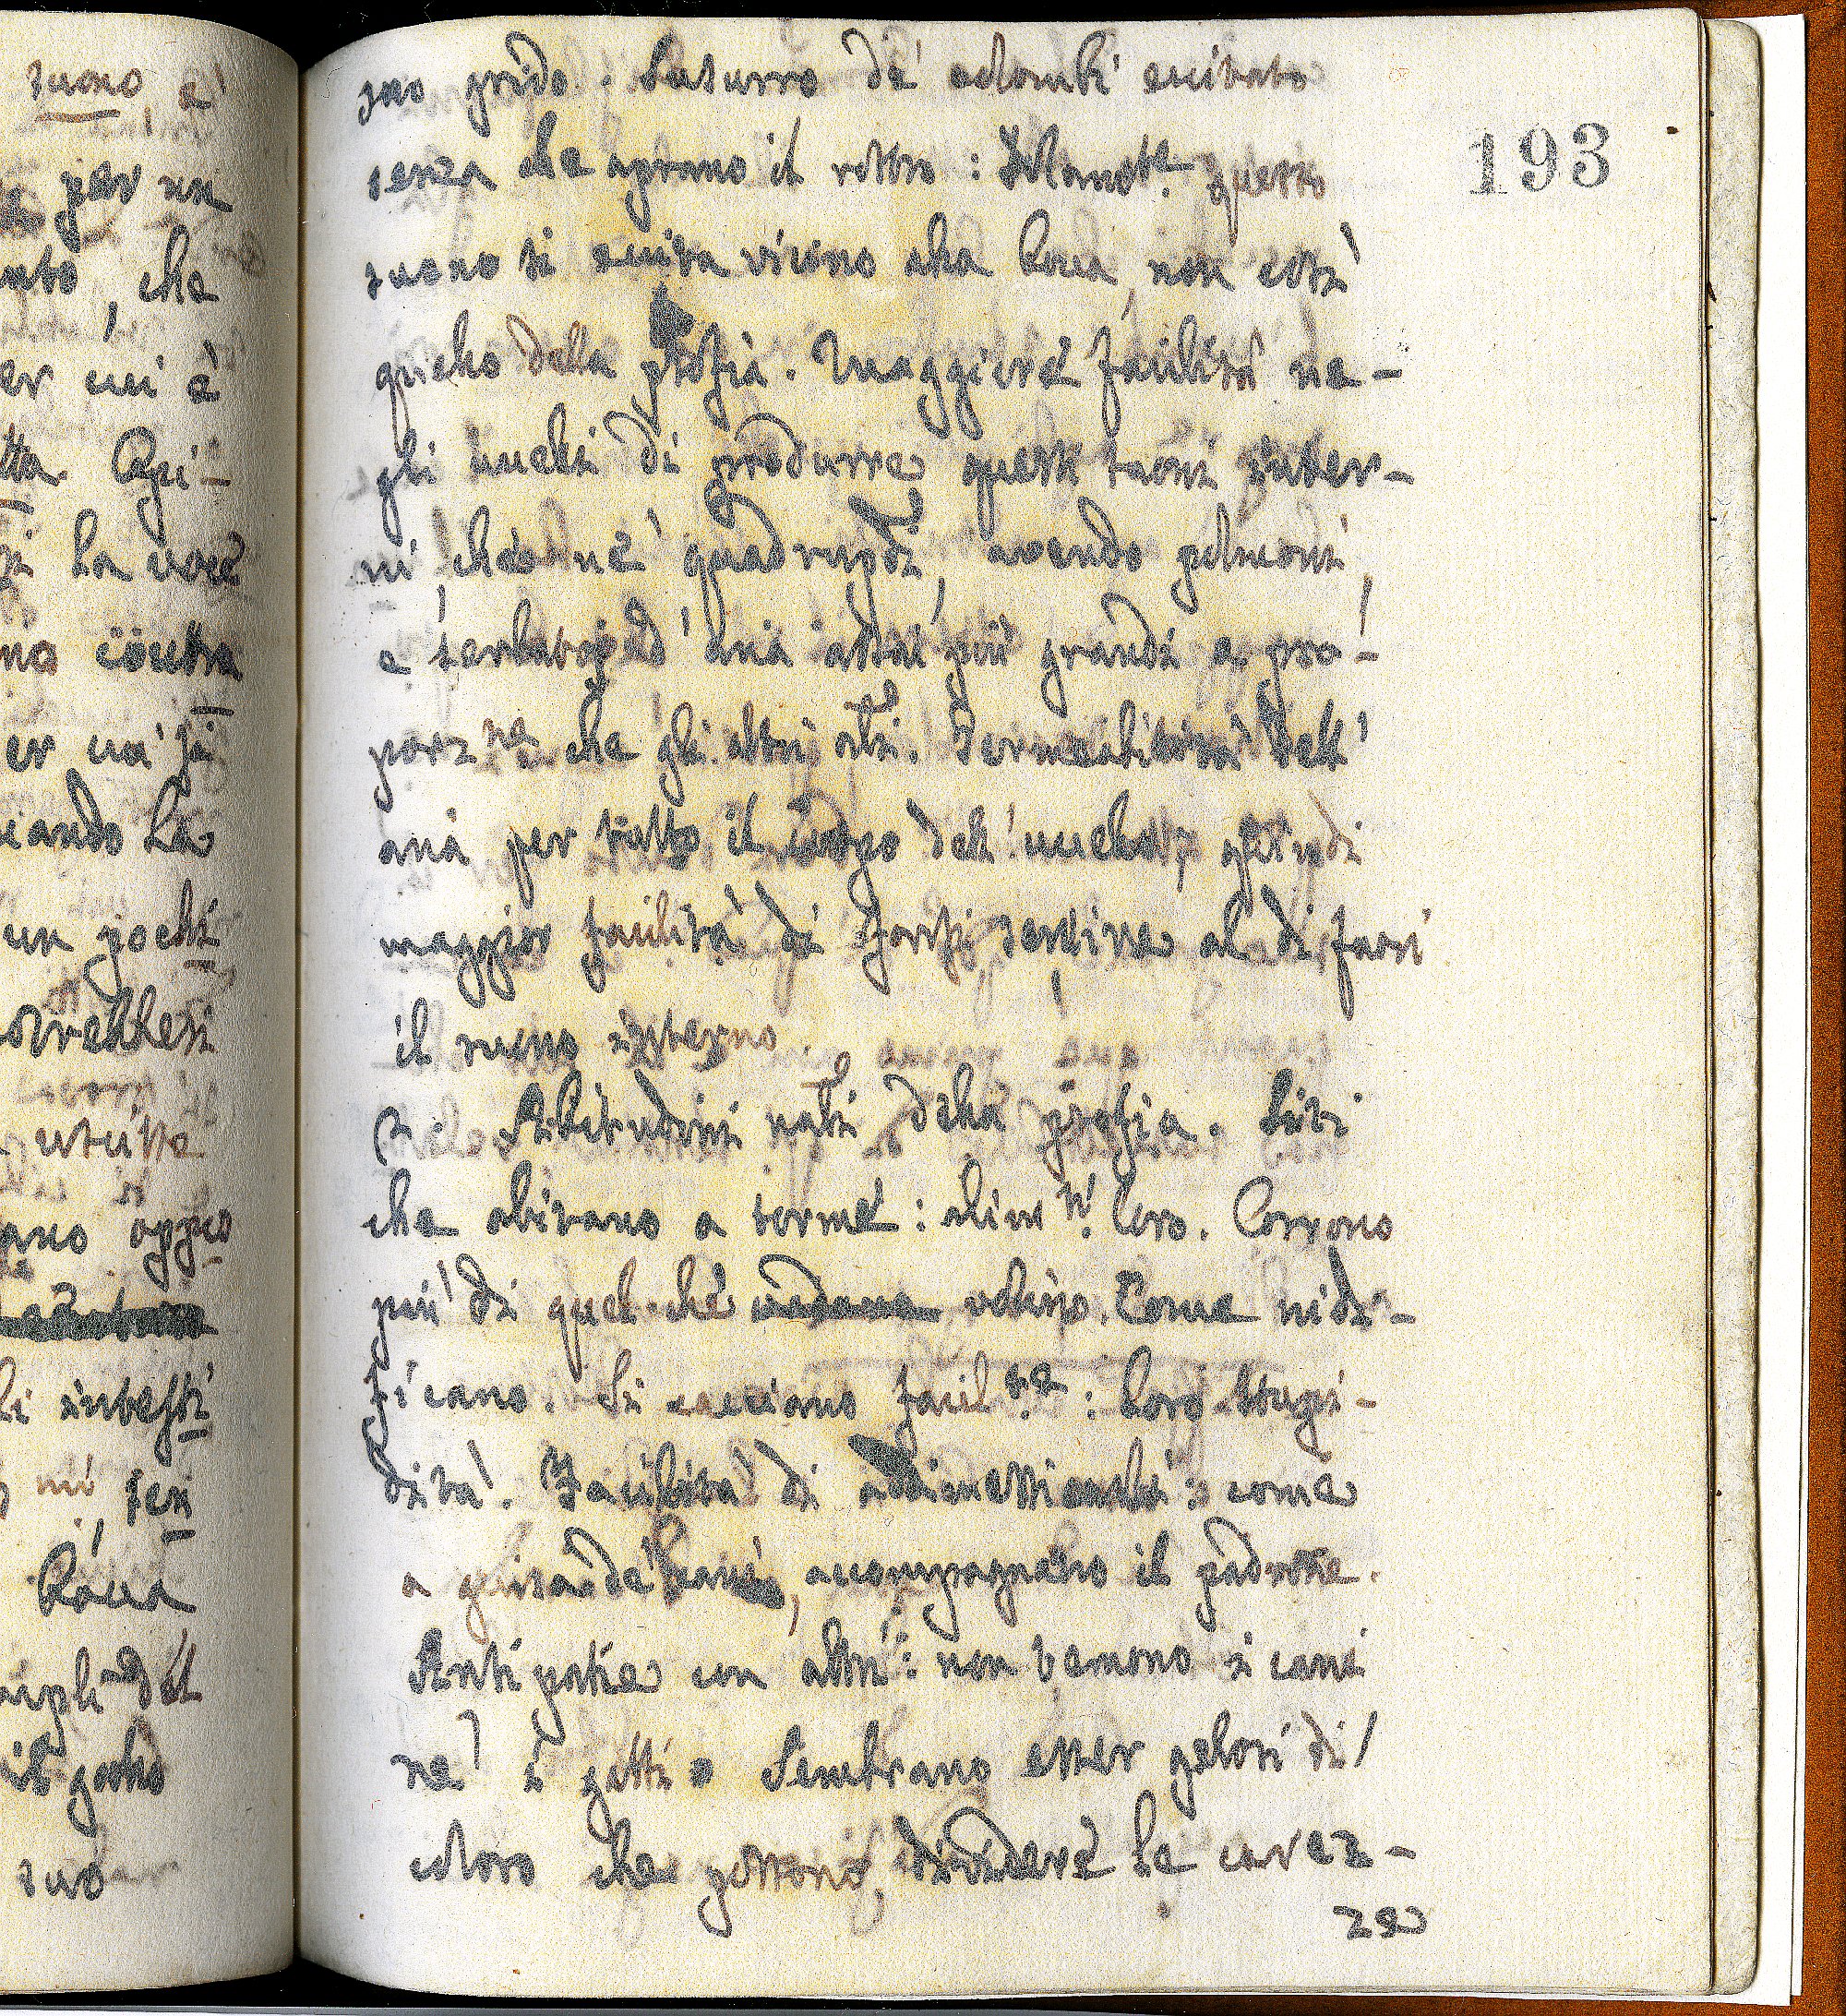 suono, e'
per un
nto, che
er cui è
tta. Qui-
si la voce
no contra
er cui si
iando la
un pochi
orrebbesi
istitto
ano oppo
li intesti
mi, sen
bocca
il gozzo
suo
suo grido. Susurro de' colombi eccitato
193
senza che aprano il rostro: Internam.te Questo
suono si eccita vicino alla bocca, non così
quello della psofia. Maggiore facilità ne-
gli uccelli di produrre questi suoni inter-
ni, che ne' quadrupedi, avendo polmoni,
e serbatoj d'aria assai più grandi a pro-
porz.ne che gli altri a.li. Permeabilità dell'
aria per tutto il corpo dell'uccello, quindi
maggior facilità di farsi sentire al di fuori
il suono interno
2. Abitudini nat.li della psofia. Siti
che abitano a torme: alim.ti loro. Corrono
più di quel che volino. Come nidi-
ficano. Si cacciano facil.te: loro stupi-
dità. Facilità di addimesticarli: come
a guisa de' cani, accompagnano il padrone.
Antipatie con altri: non temono i cani
ne' i gatti. Sembrano esser gelosi di
coloro che possono dividere le carez-
ze